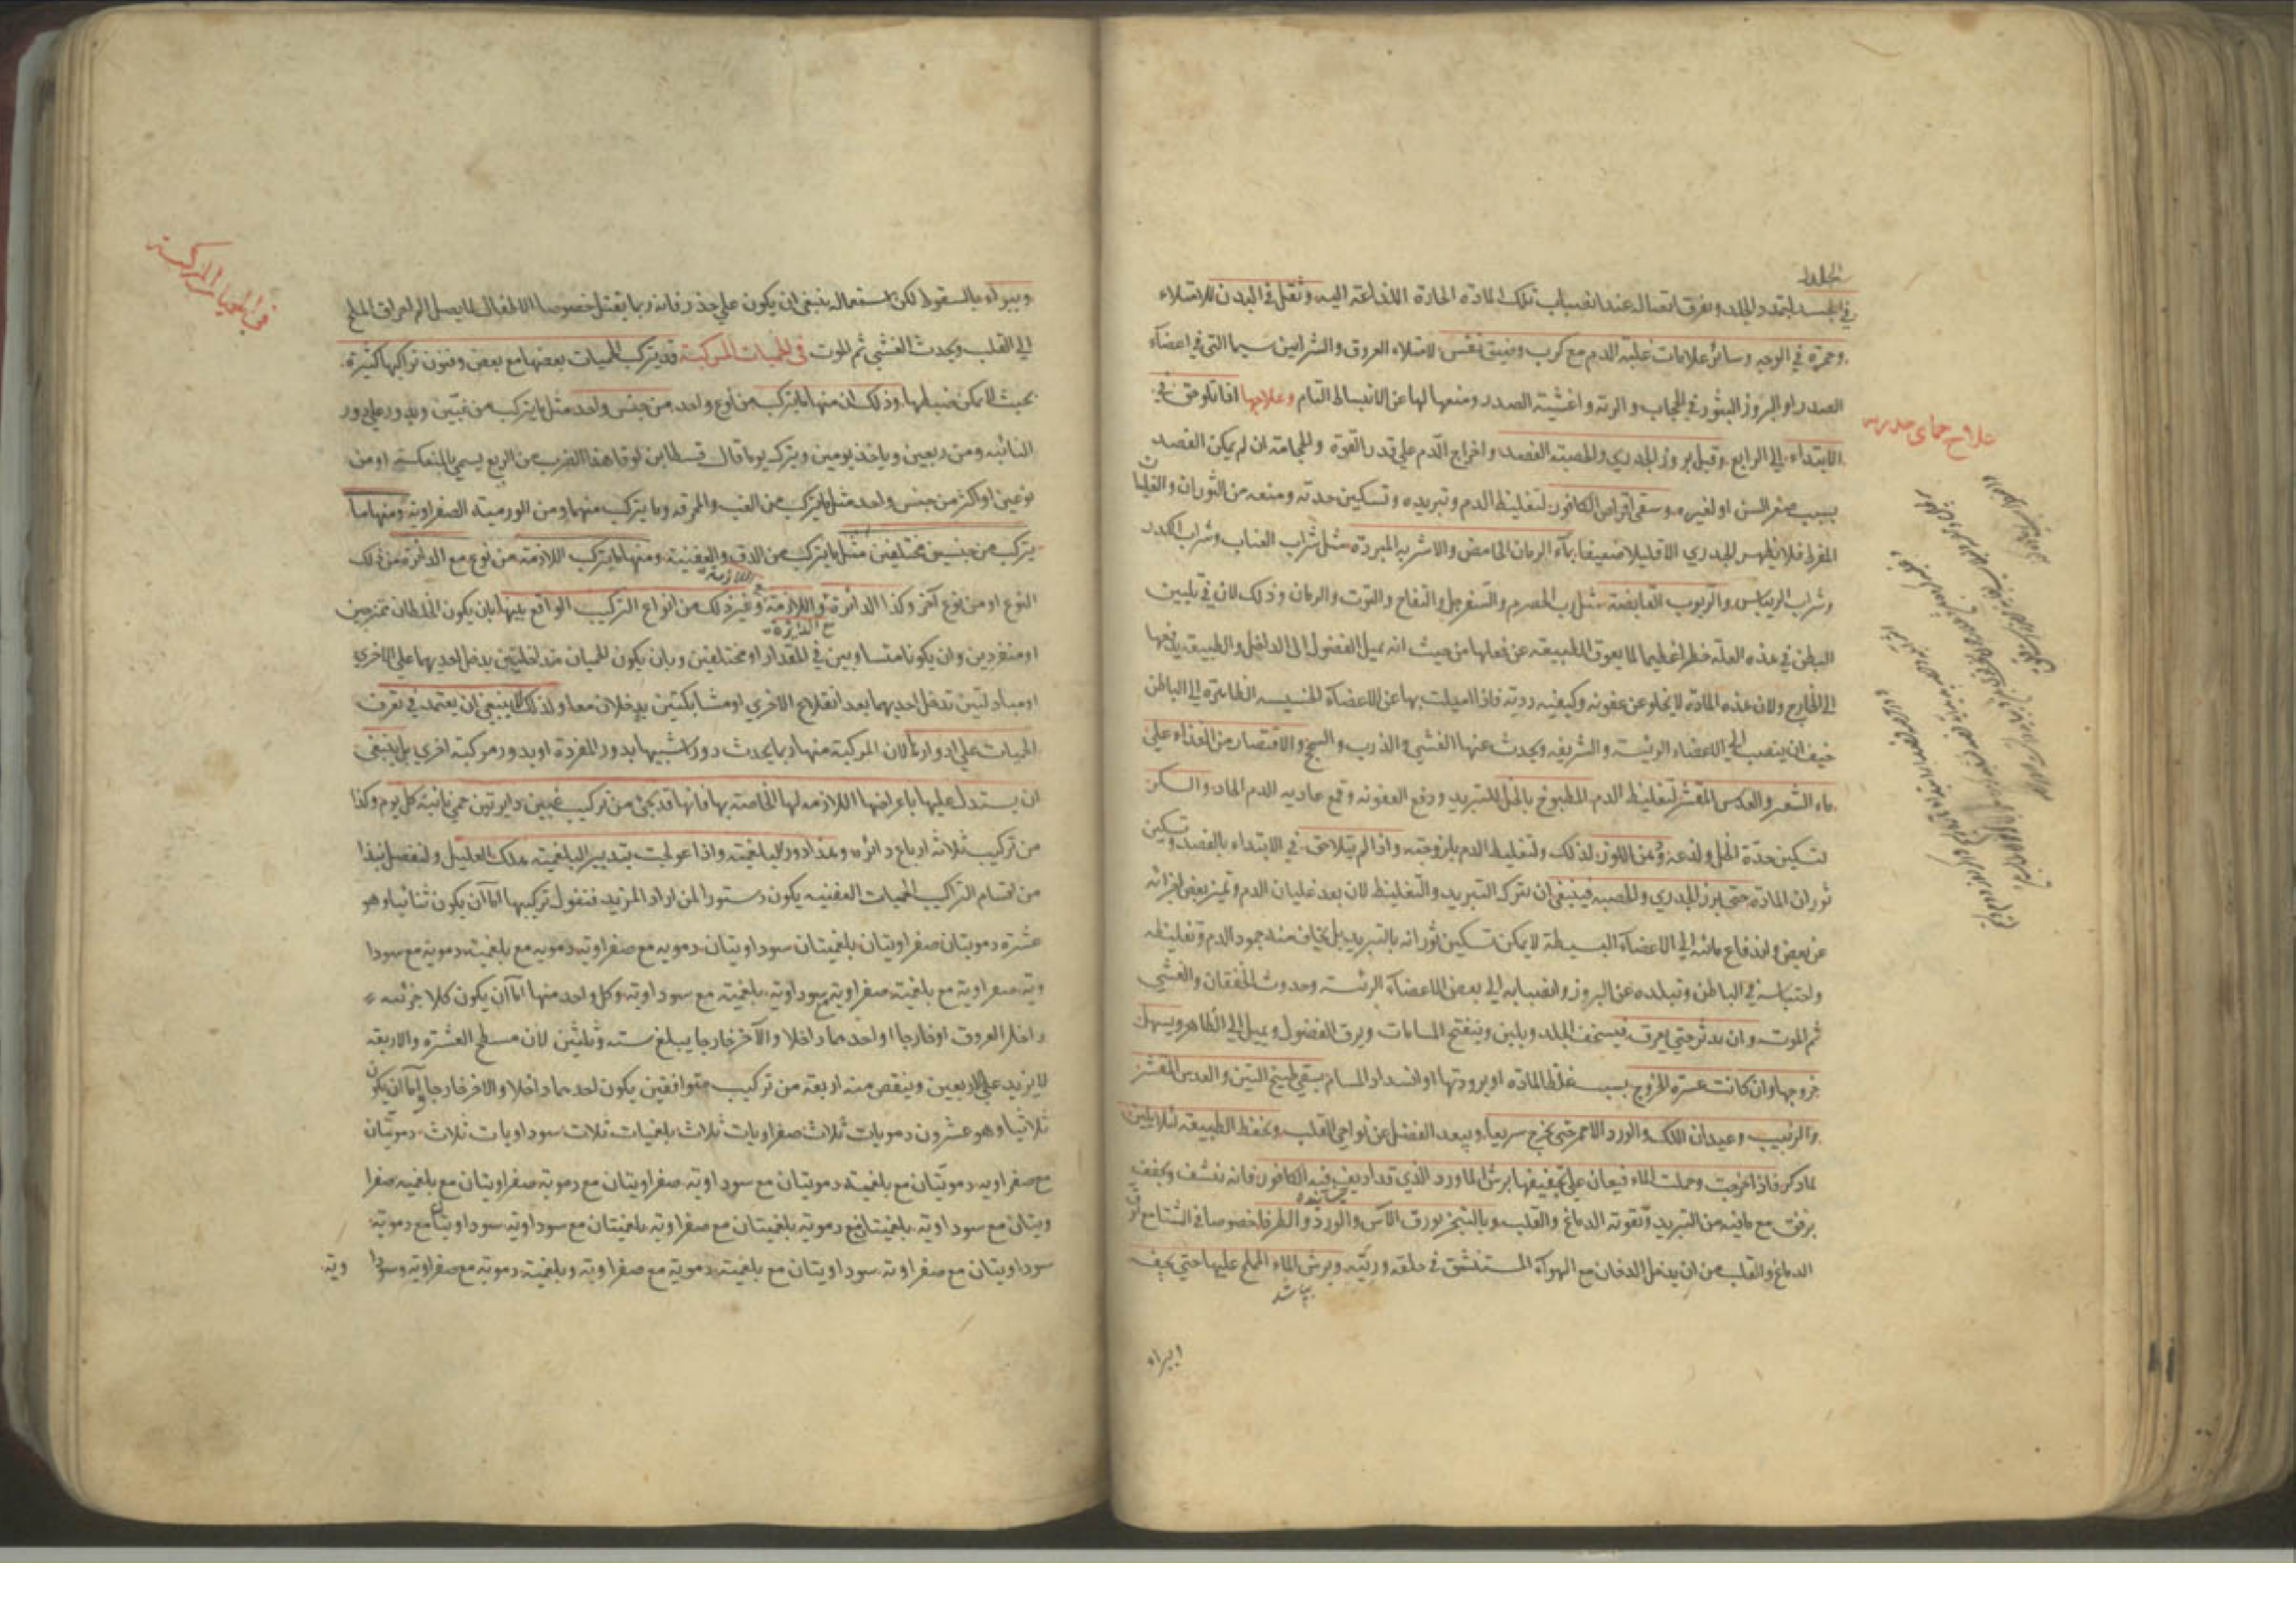 الجلد
في الجسد لتمدد الجلد وتفرق اتصاله عند انصباب تلك المادة الحارة اللذاعة اليه وثقل في البدن للامتلاء
وحمرة في الوجه وسائر علامات غلبة الدم مع كرب وضيق نفس لامتلاء العروق والشرايين سيما التي في اعضاء
الصدر او لبروز البثور في الحجاب والرئة واغشية الصدر ومنعها لها عن الانبساط التام وعلاجها اذا تلوحق في
علاج حمای جدری
الابتداء الى الرابع وقبل بروز الجدري والحصبة الفصد واخراج الدم على قدر القوة والحجامة ان لم يمكن الفصد
بسبب صغر السن او لغيره وسقي اقراص الكافور لتغليظ الدم وتبريده وتسكين حدته ومنعه من الثوران والغليان
المفرط فلا يظهر الجدري الا قليلا ضعيفا بماء الرمان الحامض والاشربة المبردة مثل شراب العناب وشراب الكدر
وشراب الريباس والربوب القابضة مثل رب الحصرم والسفرجل والتفاح والتوت والرمان وذلك لان في تليين
البطن في هذه العلة خطرا عظيما لما يعوق الطبيعة عن فعلها من حيث انه يميل الفضول الى الداخل والطبيعة يدفعها
الى الخارج ولان هذه المادة لا يخلو عن عفونة وكيفية ردية فاذا اميلت بها عن الاعضاء الخسيسة الظاهرة الى الباطن
خيف ان ينصب الى الاعضاء الرئيسة والشريفة ويحدث عنها الغشي والذرب والسحج والاقتصار من الغذاء على
ماء الشعير والعدس المقشر لتغليظ الدم المطبوخ بالخل للتبريد ودفع العفونة وقمع عادية الدم الحاد والسكر
لتسكين حدة الخل ولذعه ودهن اللوز لذلك ولتغليظ الدم بلزوجته واذا لم يتلاحق في الابتداء بالفصد وتسكين
ثوران المادة حتى برز الجدري والحصبة فينبغي ان يترك التبريد والتغليظ لان بعد غليان الدم وتميز بعض اجزائه
عن بعض واندفاع مائه الى الاعضاء البسيطة لا يمكن تسكين ثورانه بالتبريد بل يخاف منه جمود الدم وتغليظه
واحتباسه في الباطن وتبلده عن البروز وانصبابه الى بعض الاعضاء الرئيسة وحدوث الخفقان والغشي
ثم الموت وان يدثر حتى يعرق فيسخف الجلد ويلين وينفتح المسامات ويرق الفضول ويميل الى الظاهر ويسهل
خروجها وان كانت عسرة الخروج بسبب غلظ المادة او برودتها او انسداد المسام يسقي طبيخ التين والعدس المقشر
والزبيب وعيدان اللك والورد الاحمر حتى يخرج سريعا ويبعد الفضل عن نواحي القلب ويحفظ الطبيعة لئلا يلين
لما ذكر فاذا خرجت وحملت الماء فيعان على تجفيفها برش الماورد الذي قد اديف فيه الكافور فانه ينشف ويجفف
برفق مع ما فيه من التبريد وتقوية الدماغ والقلب وبالتبخر بورق الآس والورد والطرفا خصوصا في الشتا مع توقي
الدماغ والقلب من ان يدخل الدخان مع الهواء المستنشق في حلقه وريته وبرش الماء المملح عليها حتى يجف
بپاشد
ويبراء بالسقوط لكن استعماله ينبغي ان يكون على حذر فانه ربما يقتل خصوصا الاطفال لما يصل الم احراق الملح
في الحميات المركبة
الى القلب ويحدث الغشي ثم الموت في الحميات المركبة قد يتركب الحميات بعضها مع بعض وفنون تراكيبها كثيرة
بحيث لا يمكن ضبطها وذلك لان منها ما يتركب من نوع واحد من جنس واحد مثل ما يتركب من غبين ويدور على دور
النائبة ومن ربعين وياخذ يومين ويترك يوما قال قسطا بن لوقا هذا الضرب من الربع يسمى بالمنعكسة او من
نوعين او اكثر من جنس واحد مثل ما يتركب من الغب والمحرقة وما يتركب منهما ومن الورمية الصفراوية ومنها ما
يتركب من جنسين مختلفين مثل ما يتركب من الدق والعفنية ومنها ما يتركب اللازمة من نوع مع الدائرة من ذلك
النوع او من نوع آخر وكذا الدائرة واللازمة وغير ذلك من انواع التركيب الواقع بينها بان يكون الخلطان ممتزجين
او منفردين وان يكونا متساويين في المقدار او مختلفين وبان يكون الحميان متداخلتين يدخل احديهما على الاخرى
او مبادلتين تدخل احديهما بعد انقلاع الاخرى او مشابكتين يدخلان معا ولذلك لا ينبغي ان يعتمد في تعرف
الحميات على ادوارها لان المركبة منها ربما يحدث دورا شبيها بدور المفردة او بدور مركبة اخرى بل ينبغي
ان يستدل عليها باعراضها اللازمة لها الخاصة بها فانها قد يجئ من تركيب غبين دايرتين حمى نائبة كل يوم وكذا
من تركيب ثلاثة ارباع دائرة وهذا دور البلغمية واذا عولجت بتدبير البلغمية هلك العليل ولنفصل نبذا
من اقسام التراكيب الحميات العفنية يكون دستورا لمن اراد المزيد فنقول تركيبها اما ان يكون ثنائيا وهو
عشرة دمويتان صفراويتان بلغميتان سوداويتان دموية مع صفراوية دموية مع بلغمية دموية مع سودا
وية صفراوية مع بلغمية صفراوية مع سوداوية بلغمية مع سوداوية وكل واحد منها اما ان يكون كلا جزئيه
داخل العروق او خارجا او احدهما داخلا والآخر خارجا يبلغ ستة وثلثين لان مسطح العشرة والاربعة
لا يزيد على الاربعين وينقص منه اربعة من تركيب متوافقين يكون احدهما داخلا والاخر خارجا واما ان يكون
ثلاثيا وهو عشرون دمويات ثلاث صفراويات ثلاث بلغميات ثلاث سوداويات ثلاث دمويتان
مع صفراوية دمويتان مع بلغمية دمويتان مع سوداوية صفراويتان مع دموية صفراويتان مع بلغمية صفرا
ويتان مع سوداوية بلغميتان مع دموية بلغميتان مع صفراوية بلغميتان مع سوداوية سوداويتان مع دموية
سوداويتان مع صفراوية سوداويتان مع بلغمية دموية مع صفراوية وبلغمية دموية مع صفراوية وسودا وية